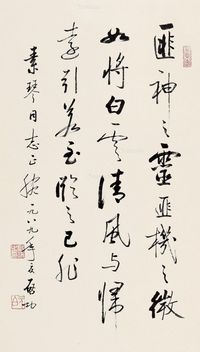 匪神之靈匪機之微
如將白雲清風与歸
遠引若至臨之已非
素琴同志正腕一九八九年夏啟功